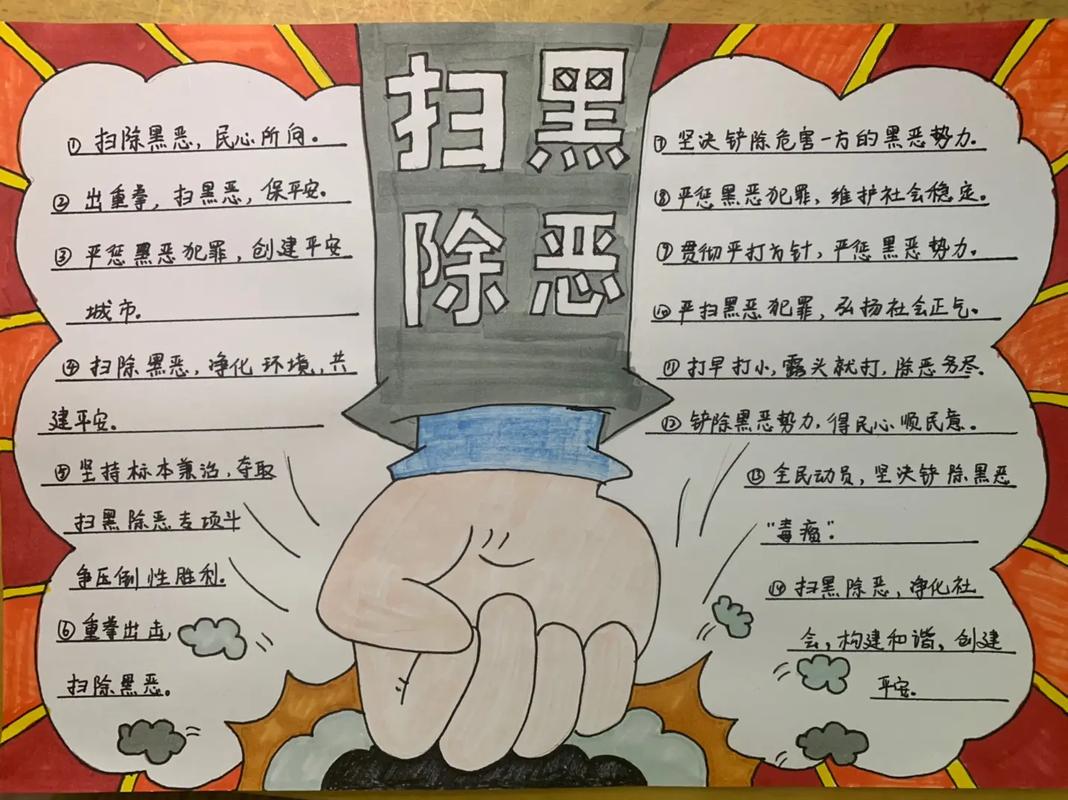 扫黑
除恶
① 扫除黑恶，民心所向。
② 出重拳，扫黑恶，保平安。
③ 严惩黑恶犯罪，创建平安
城市。
④ 扫除黑恶，净化环境，共
建平安。
⑤ 坚持标本兼治，夺取
扫黑除恶专项斗
争压倒性胜利。
⑥ 重拳出击，
扫除黑恶。
⑦ 坚决铲除危害一方的黑恶势力。
⑧ 严惩黑恶犯罪，维护社会稳定。
⑨ 贯彻严打方针，严惩黑恶势力。
⑩ 严扫黑恶犯罪，弘扬社会正气。
⑪ 打早打小，露头就打，除恶务尽。
⑫ 铲除黑恶势力，得民心顺民意。
⑬ 全民动员，坚决铲除黑恶
“毒瘤”。
⑭ 扫黑除恶，净化社
会，构建和谐，创建
平安。